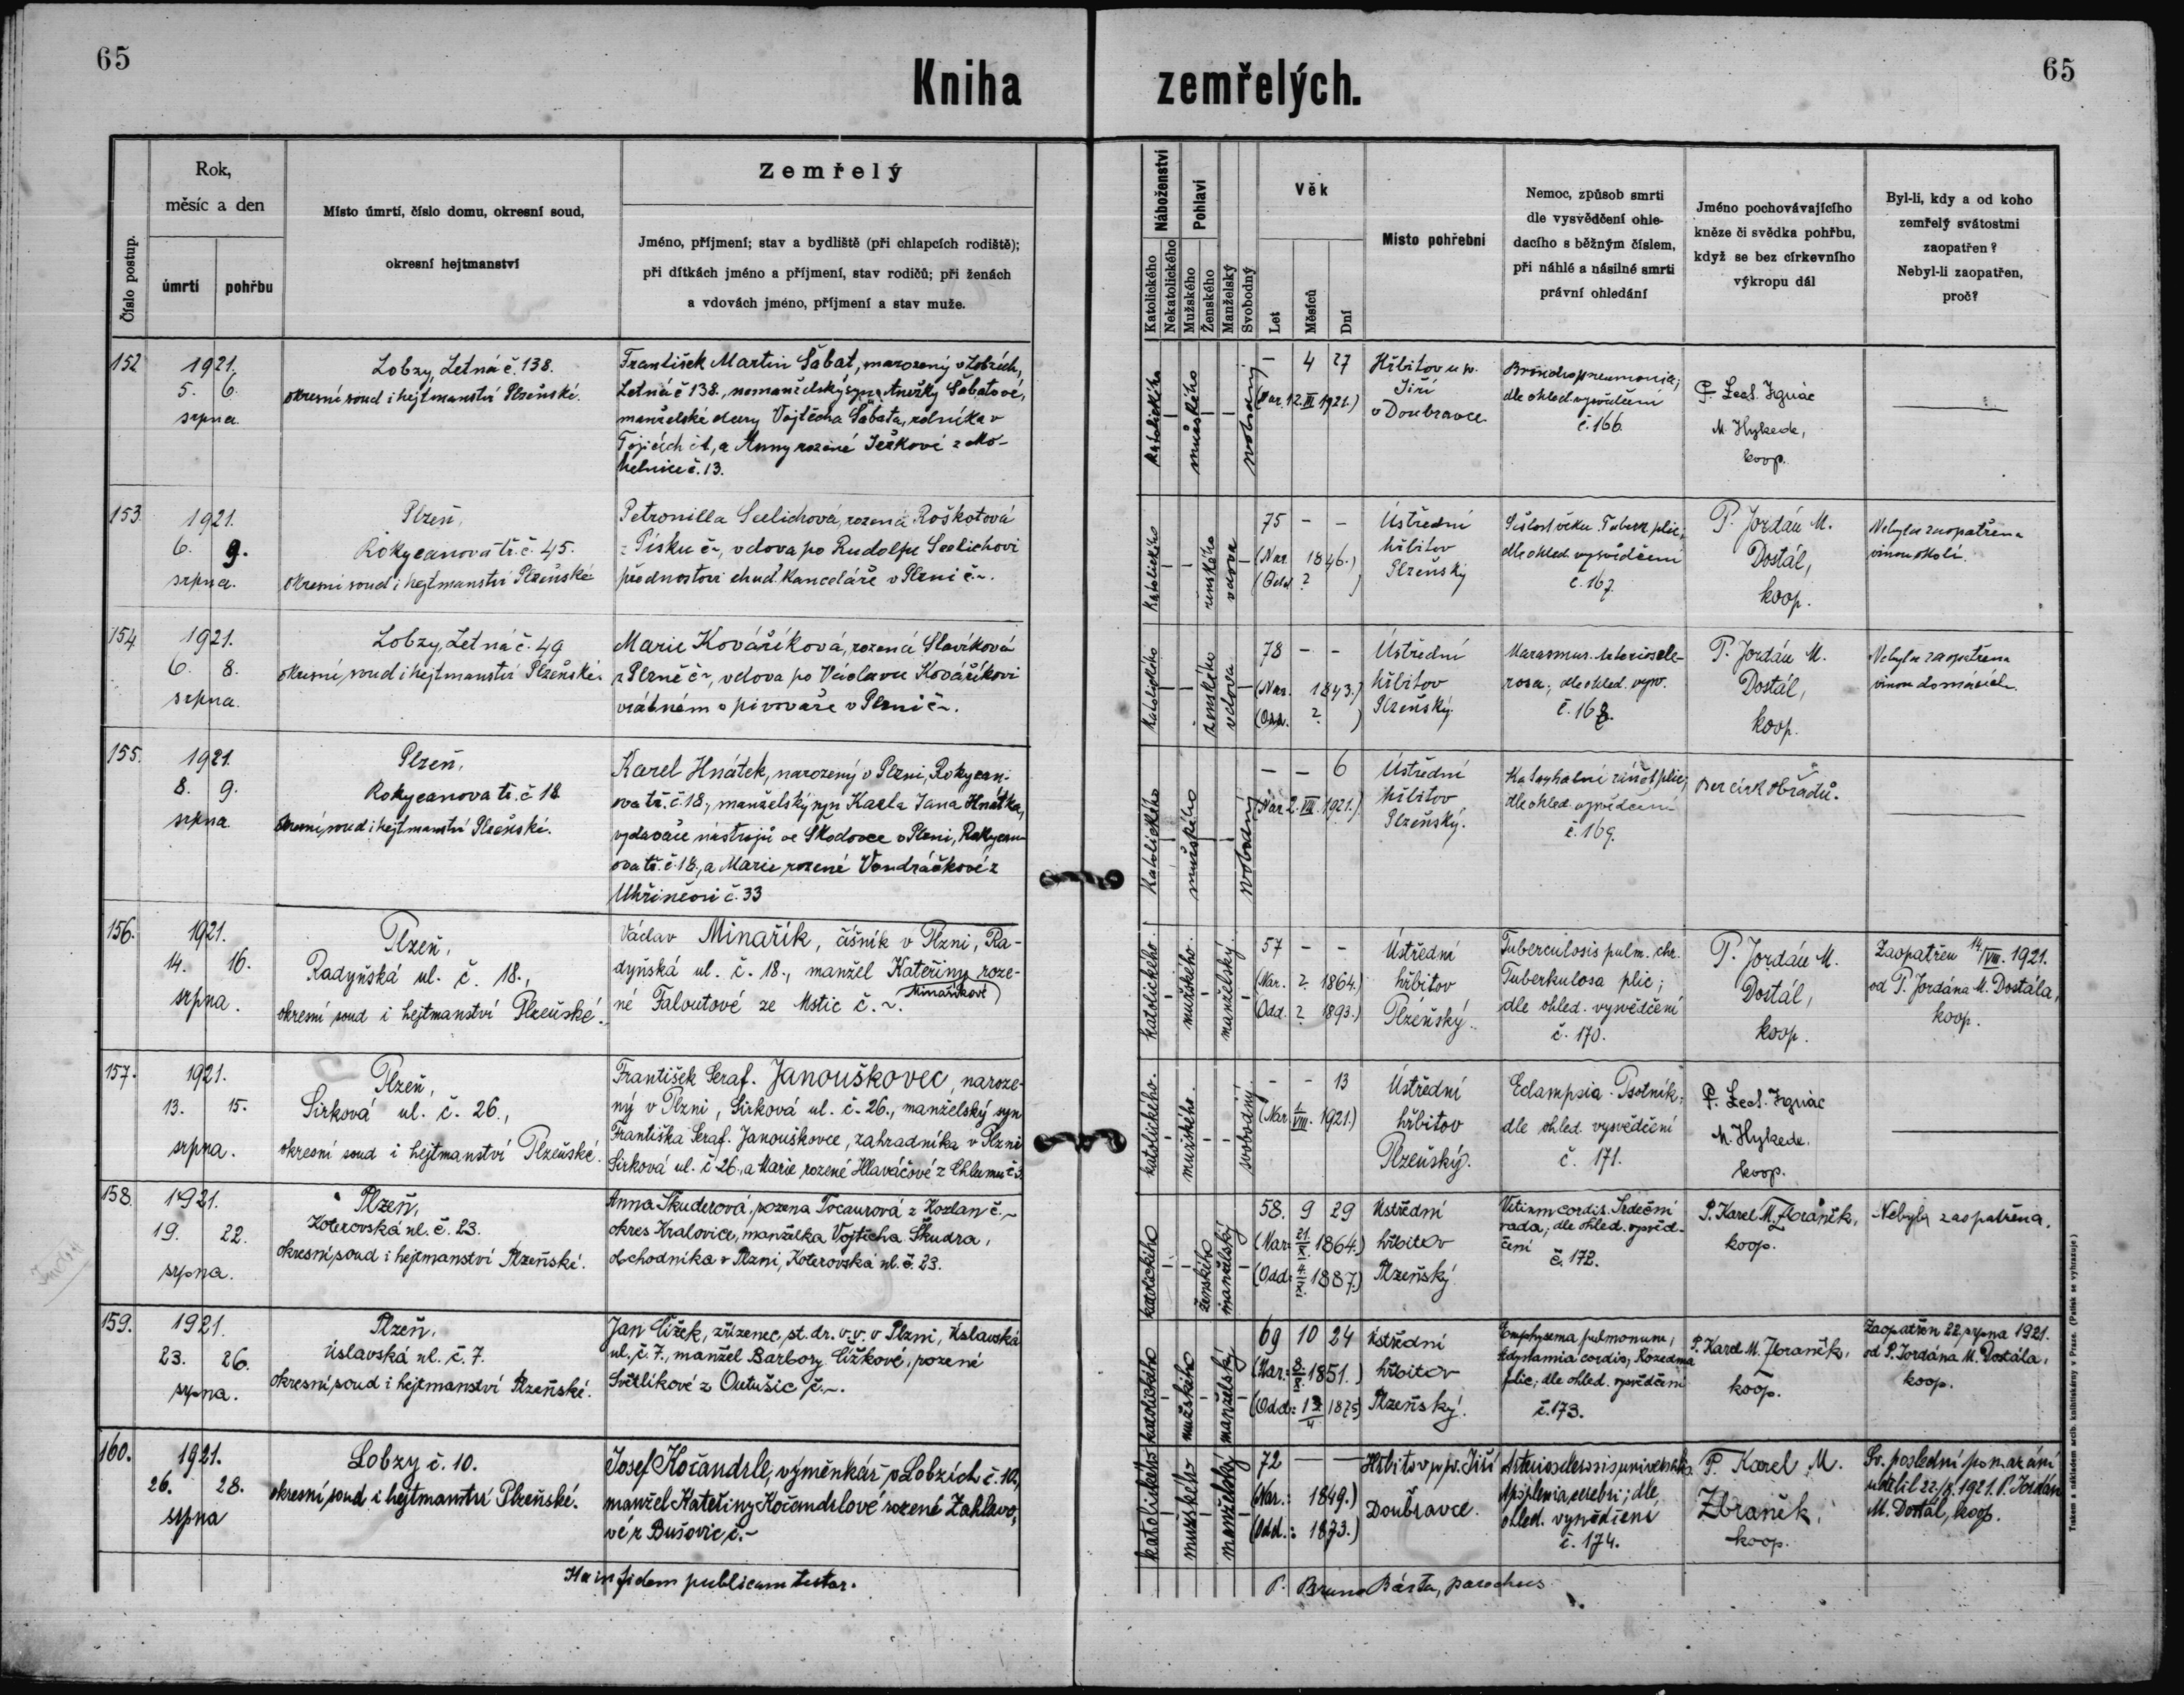 65
65
Kniha zemřelých.
Číslo postup.
Rok,
měsíc a den
úmrtí
pohřbu
Místo úmrtí, číslo domu, okresní soud,
okresní hejtmanství
Zemřelý
Jméno, příjmení; stav a bydliště (při chlapcích rodiště);
při dítkách jméno a příjmení, stav rodičů; při ženách
a vdovách jméno, příjmení a stav muže.
Náboženství
Katolického
Nekatolického
Pohlaví
Mužského
Ženského
Manželský
Svobodný
Věk
Let
Měsíců
Dní
Místo pohřební
Nemoc, způsob smrti
dle vysvědčení ohle-
dacího s běžným číslem,
při náhlé a násilné smrti
právní ohledání
Jméno pochovávajícího
kněze či svědka pohřbu,
když se bez církevního
výkropu dál
Byl-li, kdy a od koho
zemřelý svátostmi
zaopatřen?
Nebyl-li zaopatřen,
proč?
152
1921.
5. 6.
srpna.
Lobzy, Letná č. 138.
okresní soud i hejtmanství Plzeňské.
František Martin Šabat, narozený v Lobzích,
Letná č 138., nemanželský syn Anežky Šabatové,
manželské dcery Vojtěcha Šabata, rolníka v
a Anny rozené Ježkové z Mo-
helnice č. 13.
katolického
mužského
svobodný
— 4 27
(Nar. 12. III 1921.)
Hřbitov u sv.
Jiří
v Doubravce
Bronchopneumonia;
dle ohled. vysvědčení
č. 166.
P. Lect. Ignác
M. Hykede,
koop.
153.
1921.
6. 9.
srpna.
Plzeň,
Rokycanova tř. č. 45.
okresní soud i hejtmanství Plzeňské
Petronilla Seelichová, rozená Roškotová
z Písku č~, vdova po Rudolfu Seelichovi
přednostovi chud. kanceláře v Plzni č~.
katolického
ženského
vdova
75 - -
(Nar. 1846.)
(Odd. ? )
Ústřední
hřbitov
Plzeňský
Sešlost věku. Tuberk. plic;
dle ohled. vysvědčení
č. 167.
P. Jordán M.
Dostál,
koop.
Nebyla zaopatřena
vinou okolí.
154
1921.
6. 8.
srpna.
Lobzy, Letná č. 49
okresní soud i hejtmanství Plzeňské.
Marie Kováříková, rozená Slavíková
z Plzně č~, vdova po Václavu Kováříkovi
vrátném v pivováře v Plzni č~.
katolického
ženského
vdova
78 - -
(Nar. 1843.)
(Odd. ? )
Ústřední
hřbitov
Plzeňský.
Marasmus. Arteriosele-
rosa; dle ohled. vysv.
č. 168.
P. Jordán M.
Dostál,
koop.
Nebyla zaopatřena
vinou domácích.
155.
1921.
8. 9.
srpna
Plzeň,
Rokycanova tř. č 18
okresní soud i hejtmanství Plzeňské.
Karel Hnátek, narozený v Plzni, Rokycan-
ova tř. č. 18., manželský syn Karla Jana Hnátka,
vydavače nástrojů ve Škodovce v Plzni, Rokycan-
ova tř. č. 18., a Marie rozené Vondráčkové z
Uhříněvsi č. 33
katolického
mužského
svobodný
— — 6
(Nar. 2. VIII. 1921.)
Ústřední
hřbitov
Plzeňský.
Katarhalní zánět plic;
dle ohled. vysvědčení
č. 169.
Bez círk. obřadů.
156.
1921.
14. 16.
srpna.
Plzeň,
Radyňská ul. č. 18.,
okresní soud i hejtmanství Plzeňské.
Václav Minařík, číšník v Plzni, Ra-
dyňská ul. č. 18., manžel Kateřiny roze-
né Faloutové ze Mstic č.~.
Minaříkové
katolického.
mužského.
manželský.
57 - -
(Nar. ? 1864.)
(Odd. ? 1893.)
Ústřední
hřbitov
Plzeňský.
Tuberculosis pulm. chr.
Tuberkulosa plic;
dle ohled. vysvědčení
č. 170.
P. Jordán M.
Dostál,
koop.
Zaopatřen 14/VIII. 1921.
od P. Jordána M. Dostála,
koop.
157.
1921.
13. 15.
srpna.
Plzeň,
Sirková ul. č. 26.,
okresní soud i hejtmanství Plzeňské.
František Seraf. Janouškovec, naroze-
ný v Plzni, Sirková ul. č. 26., manželský syn
Františka Seraf. Janouškovce, zahradníka v Plzni
Sirková ul. č 26., a Marie rozené Hlaváčové z Chlumu č 3.
katolického.
mužského.
svobodný.
- - 13
(Nar. 1/VIII. 1921.)
Ústřední
hřbitov
Plzeňský.
Eclampsia. Psotník;
dle ohled. vysvědčení
č. 171.
P. Lect. Ignác
M. Hykede.
koop.
158.
1921.
19. 22.
srpna.
Plzeň,
Koterovská ul. č. 23.
okresní soud i hejtmanství Plzeňské.
Anna Škuderová, rozena Tocaurová z Kozlan č.~
okres Kralovice, manželka Vojtěcha Škudra,
obchodníka v Plzni, Koterovská ul. č. 23.
katolického
ženského
manželský
58. 9 29
(Nar: 21/X. 1864.)
(Odd: 4./XI. 1887.)
Ústřední
hřbitov
Plzeňský
Vitium cordis. Srdeční
vada; dle ohled. vysvěd-
čení
č. 172.
P. Karel M. Zbraněk,
koop.
Nebyla zaopatřena.
159.
1921.
23. 26.
srpna.
Plzeň.
Úslavská ul. č. 7.
okresní soud i hejtmanství Plzeňské.
Jan Čížek, zřízenec st. dr. v. v. v Plzni, Úslavská
ul. č. 7., manžel Barbory Čížkové, rozené
Světlíkové z Outušic č.~.
katolického
mužského
manželský
69 10 24
1851.)
1875)
Ústřední
hřbitov
Plzeňský.
Emphysema pulmonum,
Adynamia cordis, Rozedma
plic; dle ohled. vysvědčení
č. 173.
P. Karel M. Zbraněk,
koop.
Zaopatřen 22. srpna 1921.
od P. Jordána M. Dostála,
koop.
160.
1921.
26. 28.
srpna
Lobzy č. 10.
okresní soud i hejtmanství Plzeňské.
Josef Kočandrle, výměnkář v Lobzích č. 10,
manžel Kateřiny Kočandrlové rozené Zahlavo-
vé z Bušovic č.~
katolického
mužského
manželský
72 — —
(Nar.: 1849.)
(Odd.: 1873.)
Hřbitov u sv. Jiří
Doubravce.
Arteriosklerosis universalis.
Apoplexia cerebri; dle
ohled. vysvědčení
č. 174.
P. Karel M.
Zbraněk,
koop.
Sv. poslední pomazání
udělil 22/8. 1921. P. Jordán
M. Dostál, koop.
Ita in fidem publicam testor.
P. Bruno Bárta, parochus
Tiskem a nákladem arcib. knihtiskárny v Praze. (Patisk se vyhrazuje)